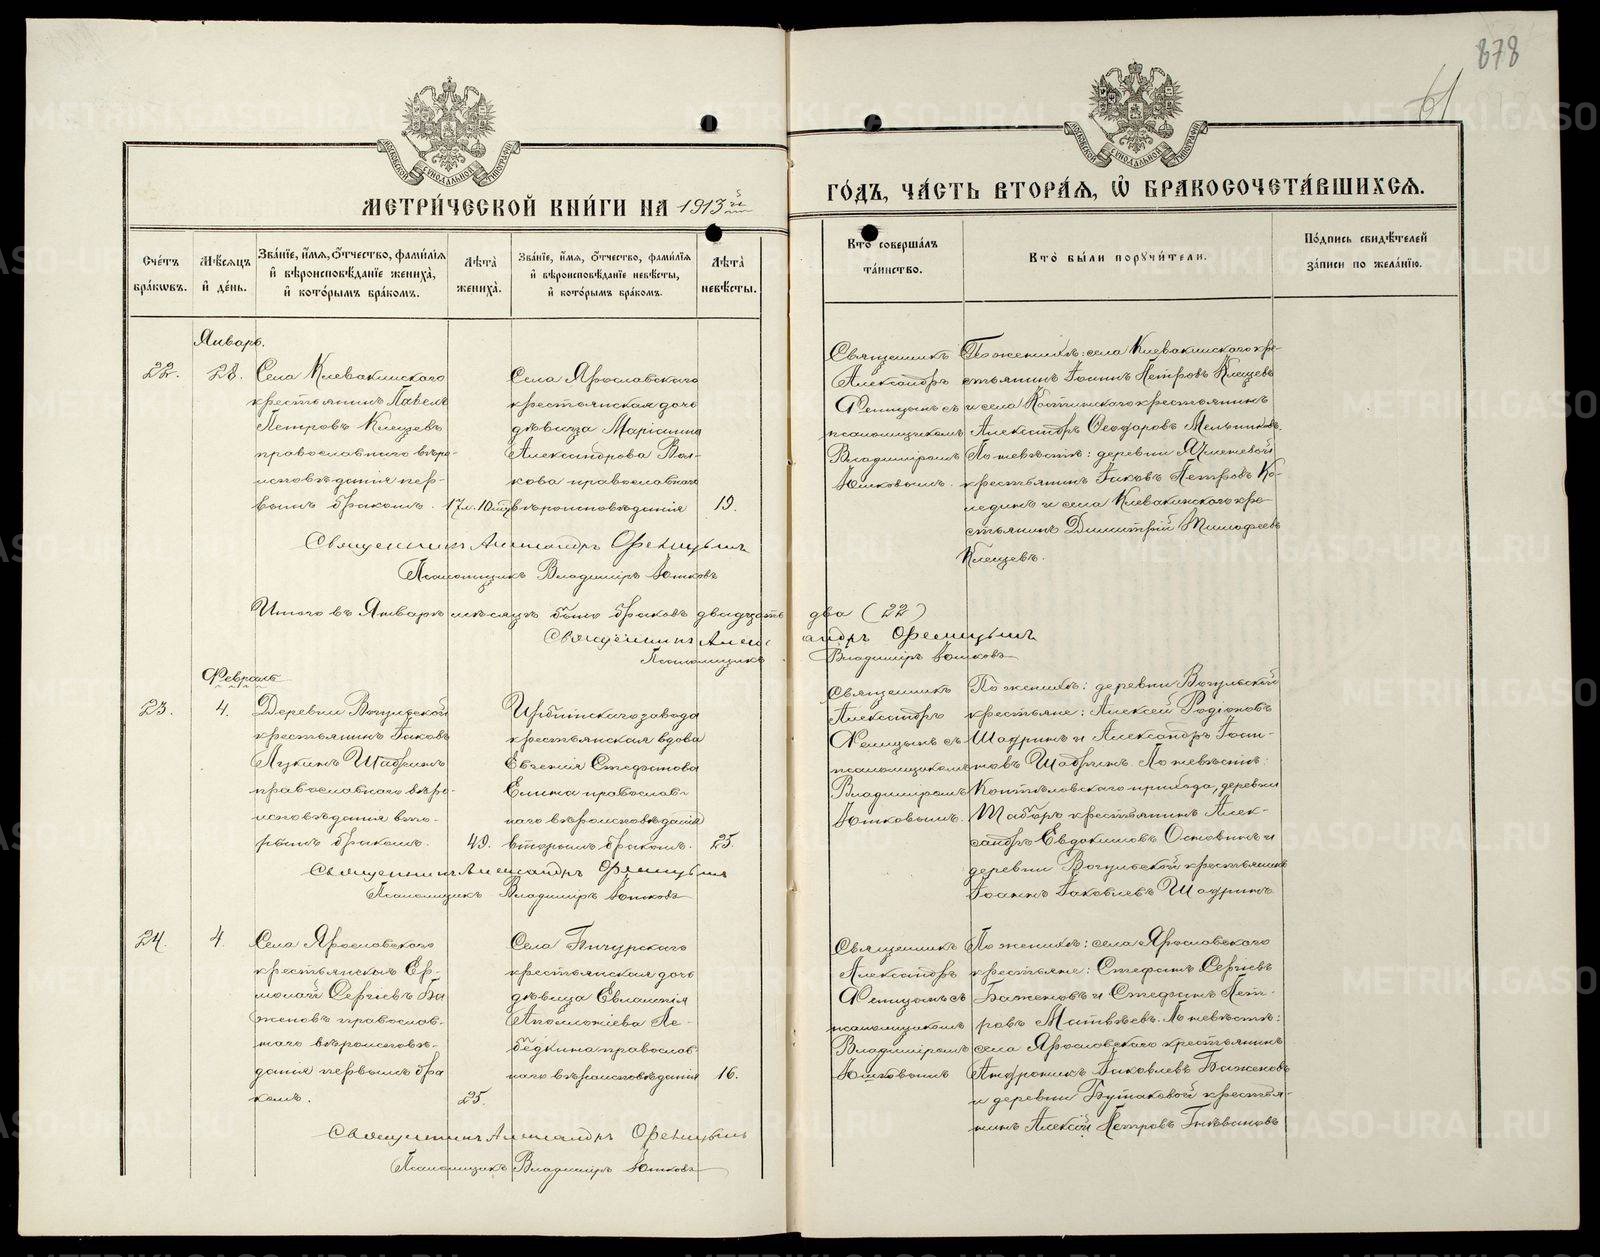 878
61
МОСКОВСКОЙ СУНОДАЛЬНОЙ ТИПОГРАФІИ
МОСКОВСКОЙ СУНОДАЛЬНОЙ ТИПОГРАФІИ
МЕТРИ́ЧЕСКОЙ КНИ́ГИ НА 1913й
ГО́ДЪ, ЧА́СТЬ ВТОРА́Я, Ѽ БРАКОСОЧЕТА́ВШИХСЯ.
Сче́тъ бра́ковъ.
Мѣ́сяцъ и҆ де́нь.
Зва́нїе, и҆́мя, ѻ҆́тчество, фами́лїѧ и҆ вѣроисповѣ́данїе жениха̀, и҆ кото́рымъ бра́комъ.
Лѣ́та жениха̀.
Зва́нїе, и҆́мя, ѻ҆́тчество, фами́лїѧ и҆ вѣроисповѣ́данїе невѣ́сты, и҆ кото́рымъ бра́комъ.
Лѣ́та невѣ́сты.
Кто̀ соверша́лъ та́инство.
Кто̀ бы́ли порꙋчи́тели.
По́дпись свидѣ́телей за́писи по жела́нїю.
Январь.
22.
28.
Села Клевакинскаго
крестьянинъ Павелъ
Петровъ Клещевъ
православнаго вѣро-
исповѣданія пер-
вымъ бракомъ.
17 л. 10 м.
Села Ярославскаго
крестьянская дочь
дѣвица Маріанна
Александрова Вол-
кова православнаго
вѣроисповѣданія
19.
Священникъ
Александръ
Фелицынъ съ
псаломщикомъ
Владиміромъ
Юшковымъ.
По женихѣ: села Клевакинскаго кре-
стьянинъ Іоаннъ Петровъ Клещевъ
и села Костинскаго крестьянинъ
Александръ Ѳеодоровъ Мельниковъ.
По невѣстѣ: деревни Ячменевой
крестьянинъ Іаковъ Петровъ Ко-
лединъ и села Клевакинскаго кре-
стьянинъ Димитрій Тимофеевъ
Клещевъ.
Священникъ Александръ Фелицынъ
Псаломщикъ Владиміръ Юшковъ
Итого въ Январѣ мѣсяцѣ было браковъ двадцать два (22)
Священникъ Александръ Фелицынъ
Псаломщикъ Владиміръ Юшковъ
Февраль
23.
4.
Деревни Вогульской
крестьянинъ Іаковъ
Лукинъ Шадринъ
православнаго вѣро-
исповѣданія вто-
рымъ бракомъ.
49.
Ирбитскаго завода
крестьянская вдова
Евгенія Стефанова
Елина православ-
наго вѣроисповѣданія
вторымъ бракомъ.
25.
Священникъ
Александръ
Фелицынъ съ
псаломщикомъ
Владиміромъ
Юшковымъ.
По женихѣ: деревни Вогульской
крестьяне: Алексей Родіоновъ
Шадринъ и Александръ Іоан-
новъ Шадринъ. По невѣстѣ:
прихода, деревни
крестьянинъ Алек-
сандръ Евдокимовъ Основинъ и
деревни Вогульской крестьянинъ
Іоаннъ Іаковлевъ Шадринъ
Священникъ Александръ Фелицынъ
Псаломщикъ Владиміръ Юшковъ
24.
4.
Села Ярославскаго
крестьянской Ер-
молай Сергіевъ Ба-
женовъ православ-
наго вѣроисповѣ-
данія первымъ бра
комъ.
25.
Села Бичурскаго
крестьянская дочь
дѣвица Евлампія
Ле-
бедкина православ-
наго вѣроисповѣданія
16.
Священникъ
Александръ
Фелицынъ съ
псаломщикомъ
Владиміромъ
Юшковымъ
По женихѣ: села Ярославскаго
крестьяне: Стефанъ Сергіевъ
Баженовъ и Стефанъ Пет-
ровъ Матвѣевъ. По невѣстѣ:
села Ярославскаго крестьянинъ
Андроникъ Іаковлевъ Баженовъ
и деревни Бушаковой крестья-
нинъ Алексѣй Петровъ
Священникъ Александръ Фелицынъ
Псаломщикъ Владиміръ Юшковъ
METRIKI.GASO-URAL.RU